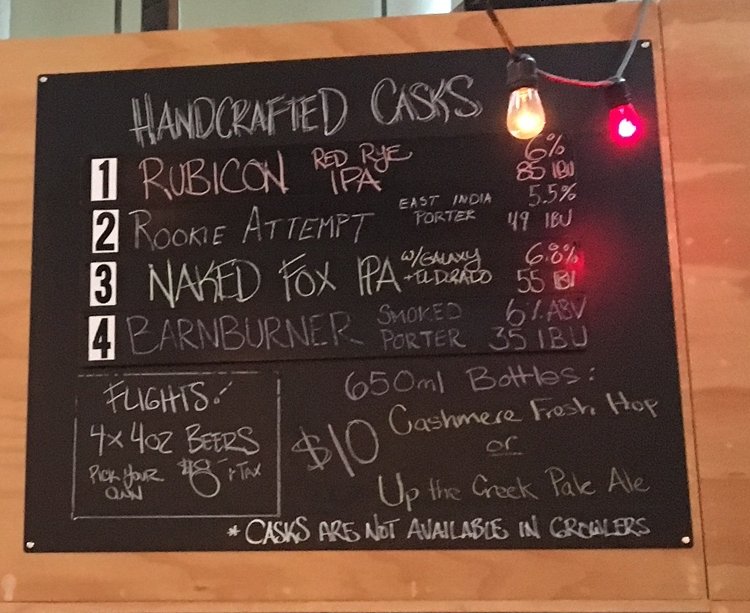 HANDCRAFTED CASKS
1 RUBICON RED RYE IPA 6% 85 IBU
2 ROOKIE ATTEMPT EAST INDIA PORTER 5.5% 49 IBU
3 NAKED FOX IPA W/GALAXY + ELDORADO 6.8% 55 IBU
4 BARNBURNER SMOKED PORTER 6% ABV 35 IBU
FLIGHTS:
4x 4oz BEERS
PICK YOUR OWN $8 + TAX
650ml Bottles:
$10 Cashmere Fresh Hop
or
Up the Creek Pale Ale
* CASKS ARE NOT AVAILABLE IN GROWLERS